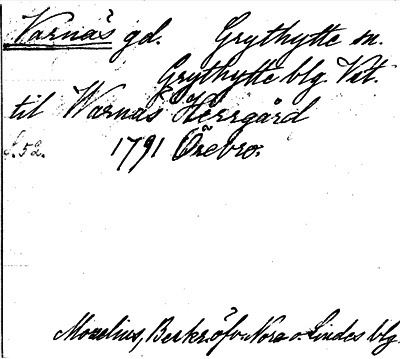 Varnäs gd. Grythytte sn.
Grythytte blg. Vst.
til Warnäs Herrgård
S. 52. 1791 Örebro.
Mozelius, Beskr. öfv. Nora o. Lindes blg.